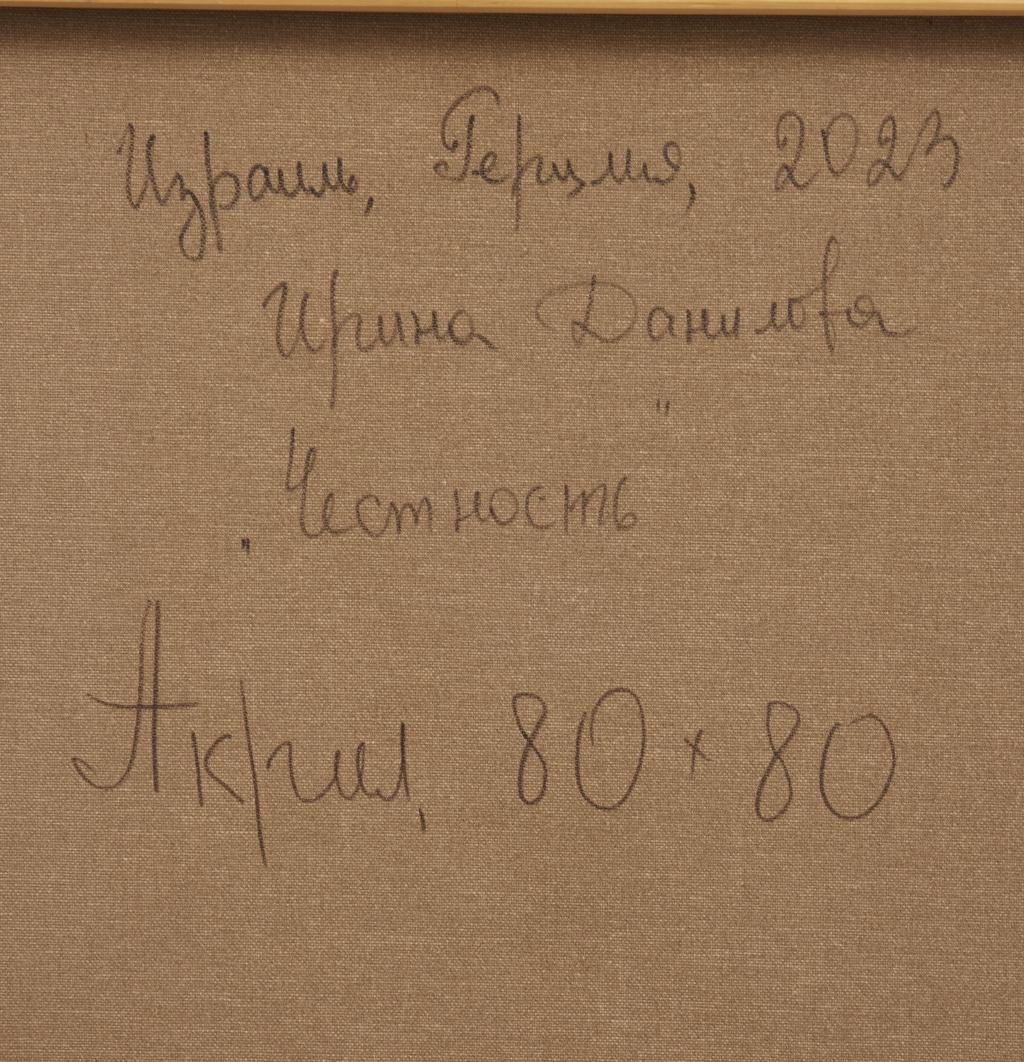 Израиль, Герцлия, 2023
Ирина Данилова
„Честность"
Акрил, 80 x 80